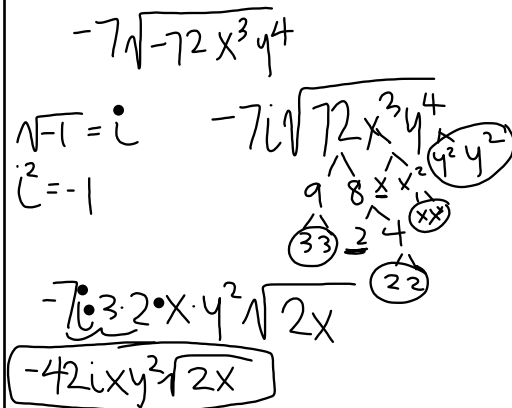 -7√-72x³y⁴
√-1 = i
i² = -1
-7i√72x³y⁴
y² y²
9 8 x x²
33 2 4 xx
22
-7i·3·2·x·y²√2x
-42ixy²√2x